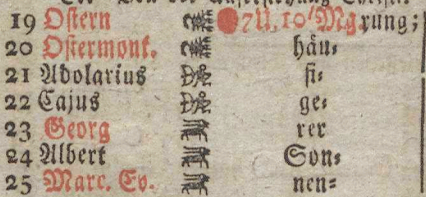 19 Ostern 7U, 10'Mgrung;
20 Ostermont. häu⸗
21 Adolarius si⸗
22 Cajus ge⸗
23 Georg rer
24 Albert Son⸗
25 Marc. Ev. nen⸗